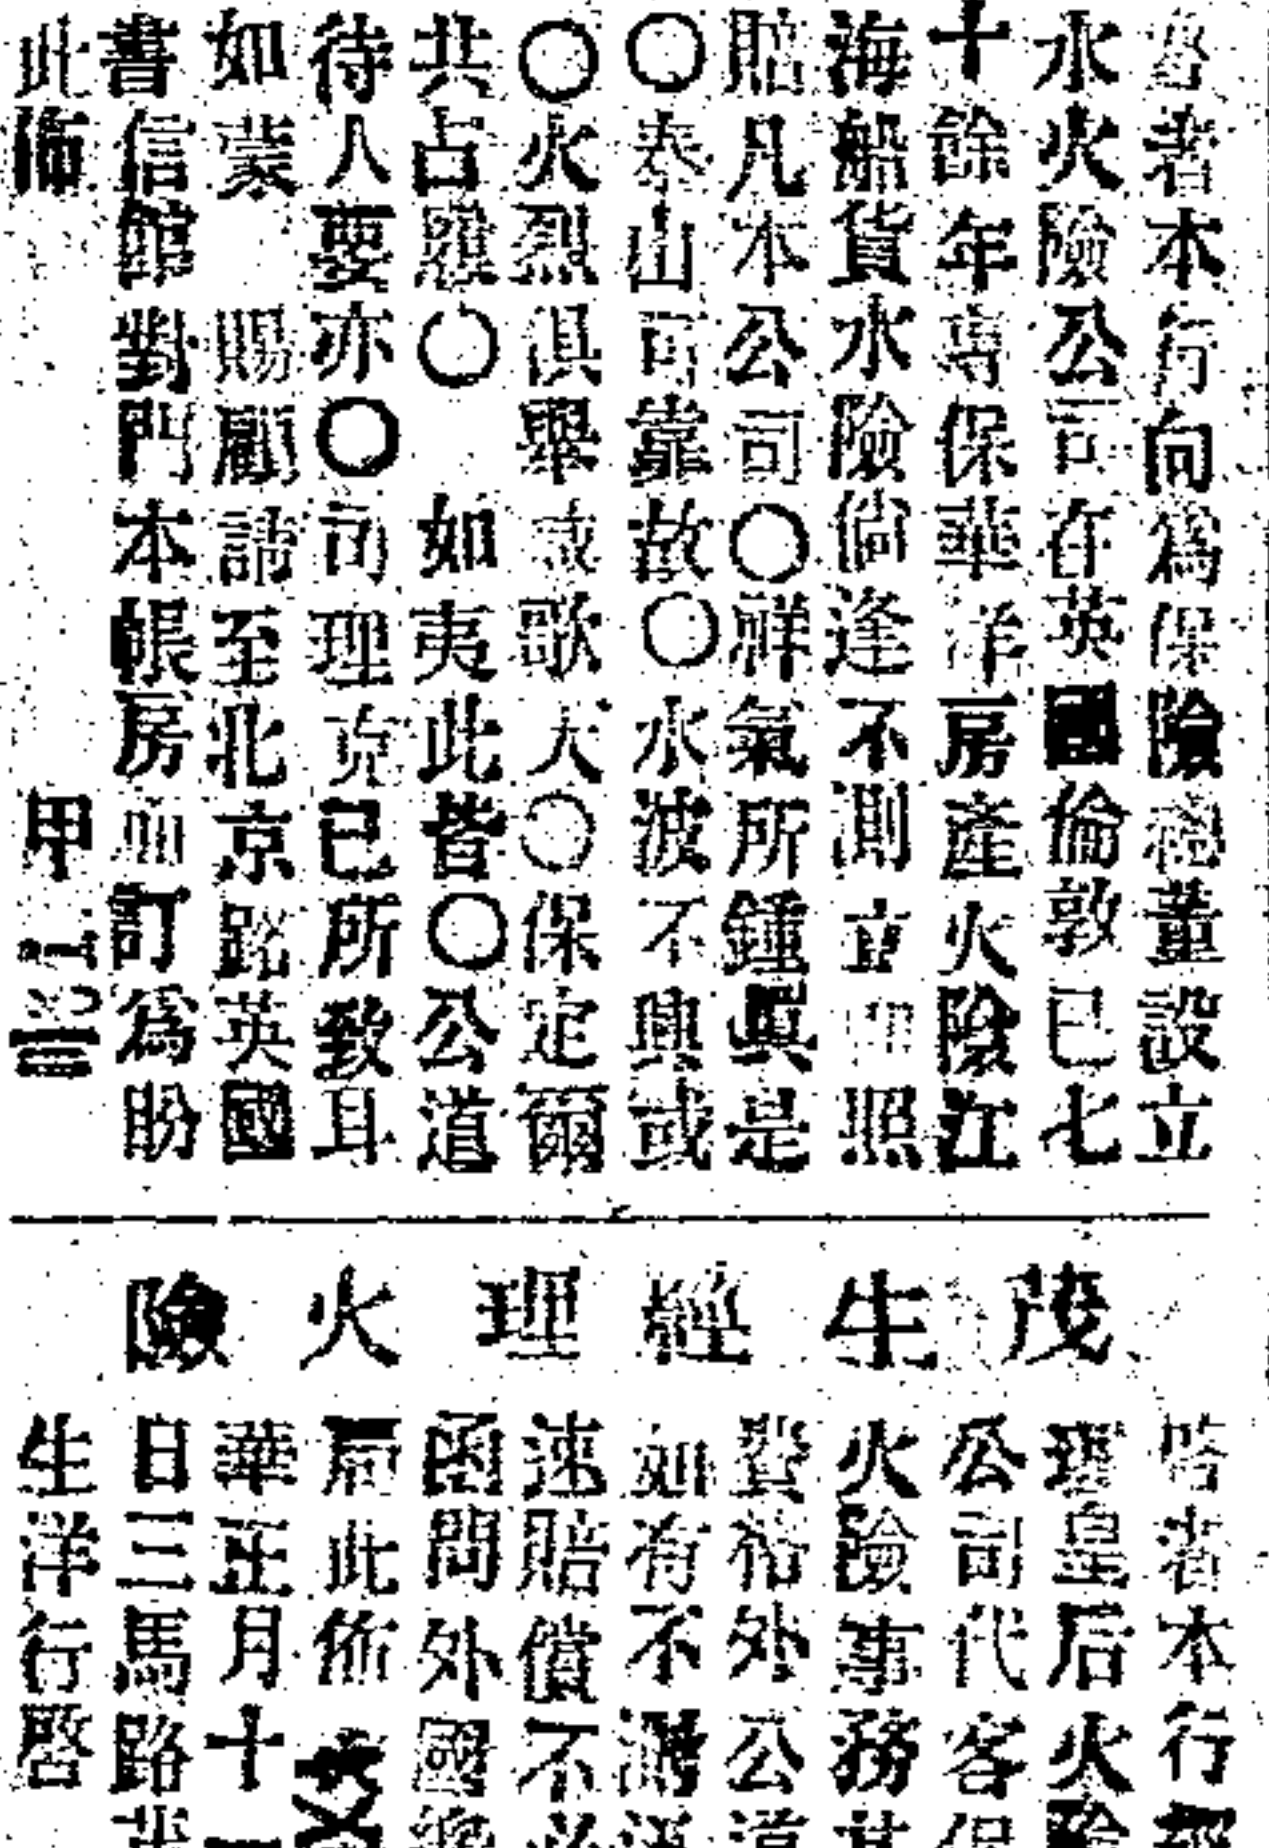 啓者本行向爲保險總董設立
水火險公司在英國倫敦已七
十餘年專保華洋房產火險江
海船貨水險倘逢不測立即照
賠凡本公司○祥氣所鍾眞是
○泰山可靠故○水波不興或
○火烈俱舉或歌大○保定爾
共占慰○　如夷此皆○公道
待人要亦○司理克已所致耳
如蒙　賜顧請至北京路英國
書信館對門本帳房面訂爲盼
此佈　甲
茂生經理火險
啓者本行經
理皇后火險
公司代客保
火險事務其
資裕外公道
如有不測迅
速賠償不必
函問外國總
局此佈
華正月十一
日三馬路茂
生洋行啓